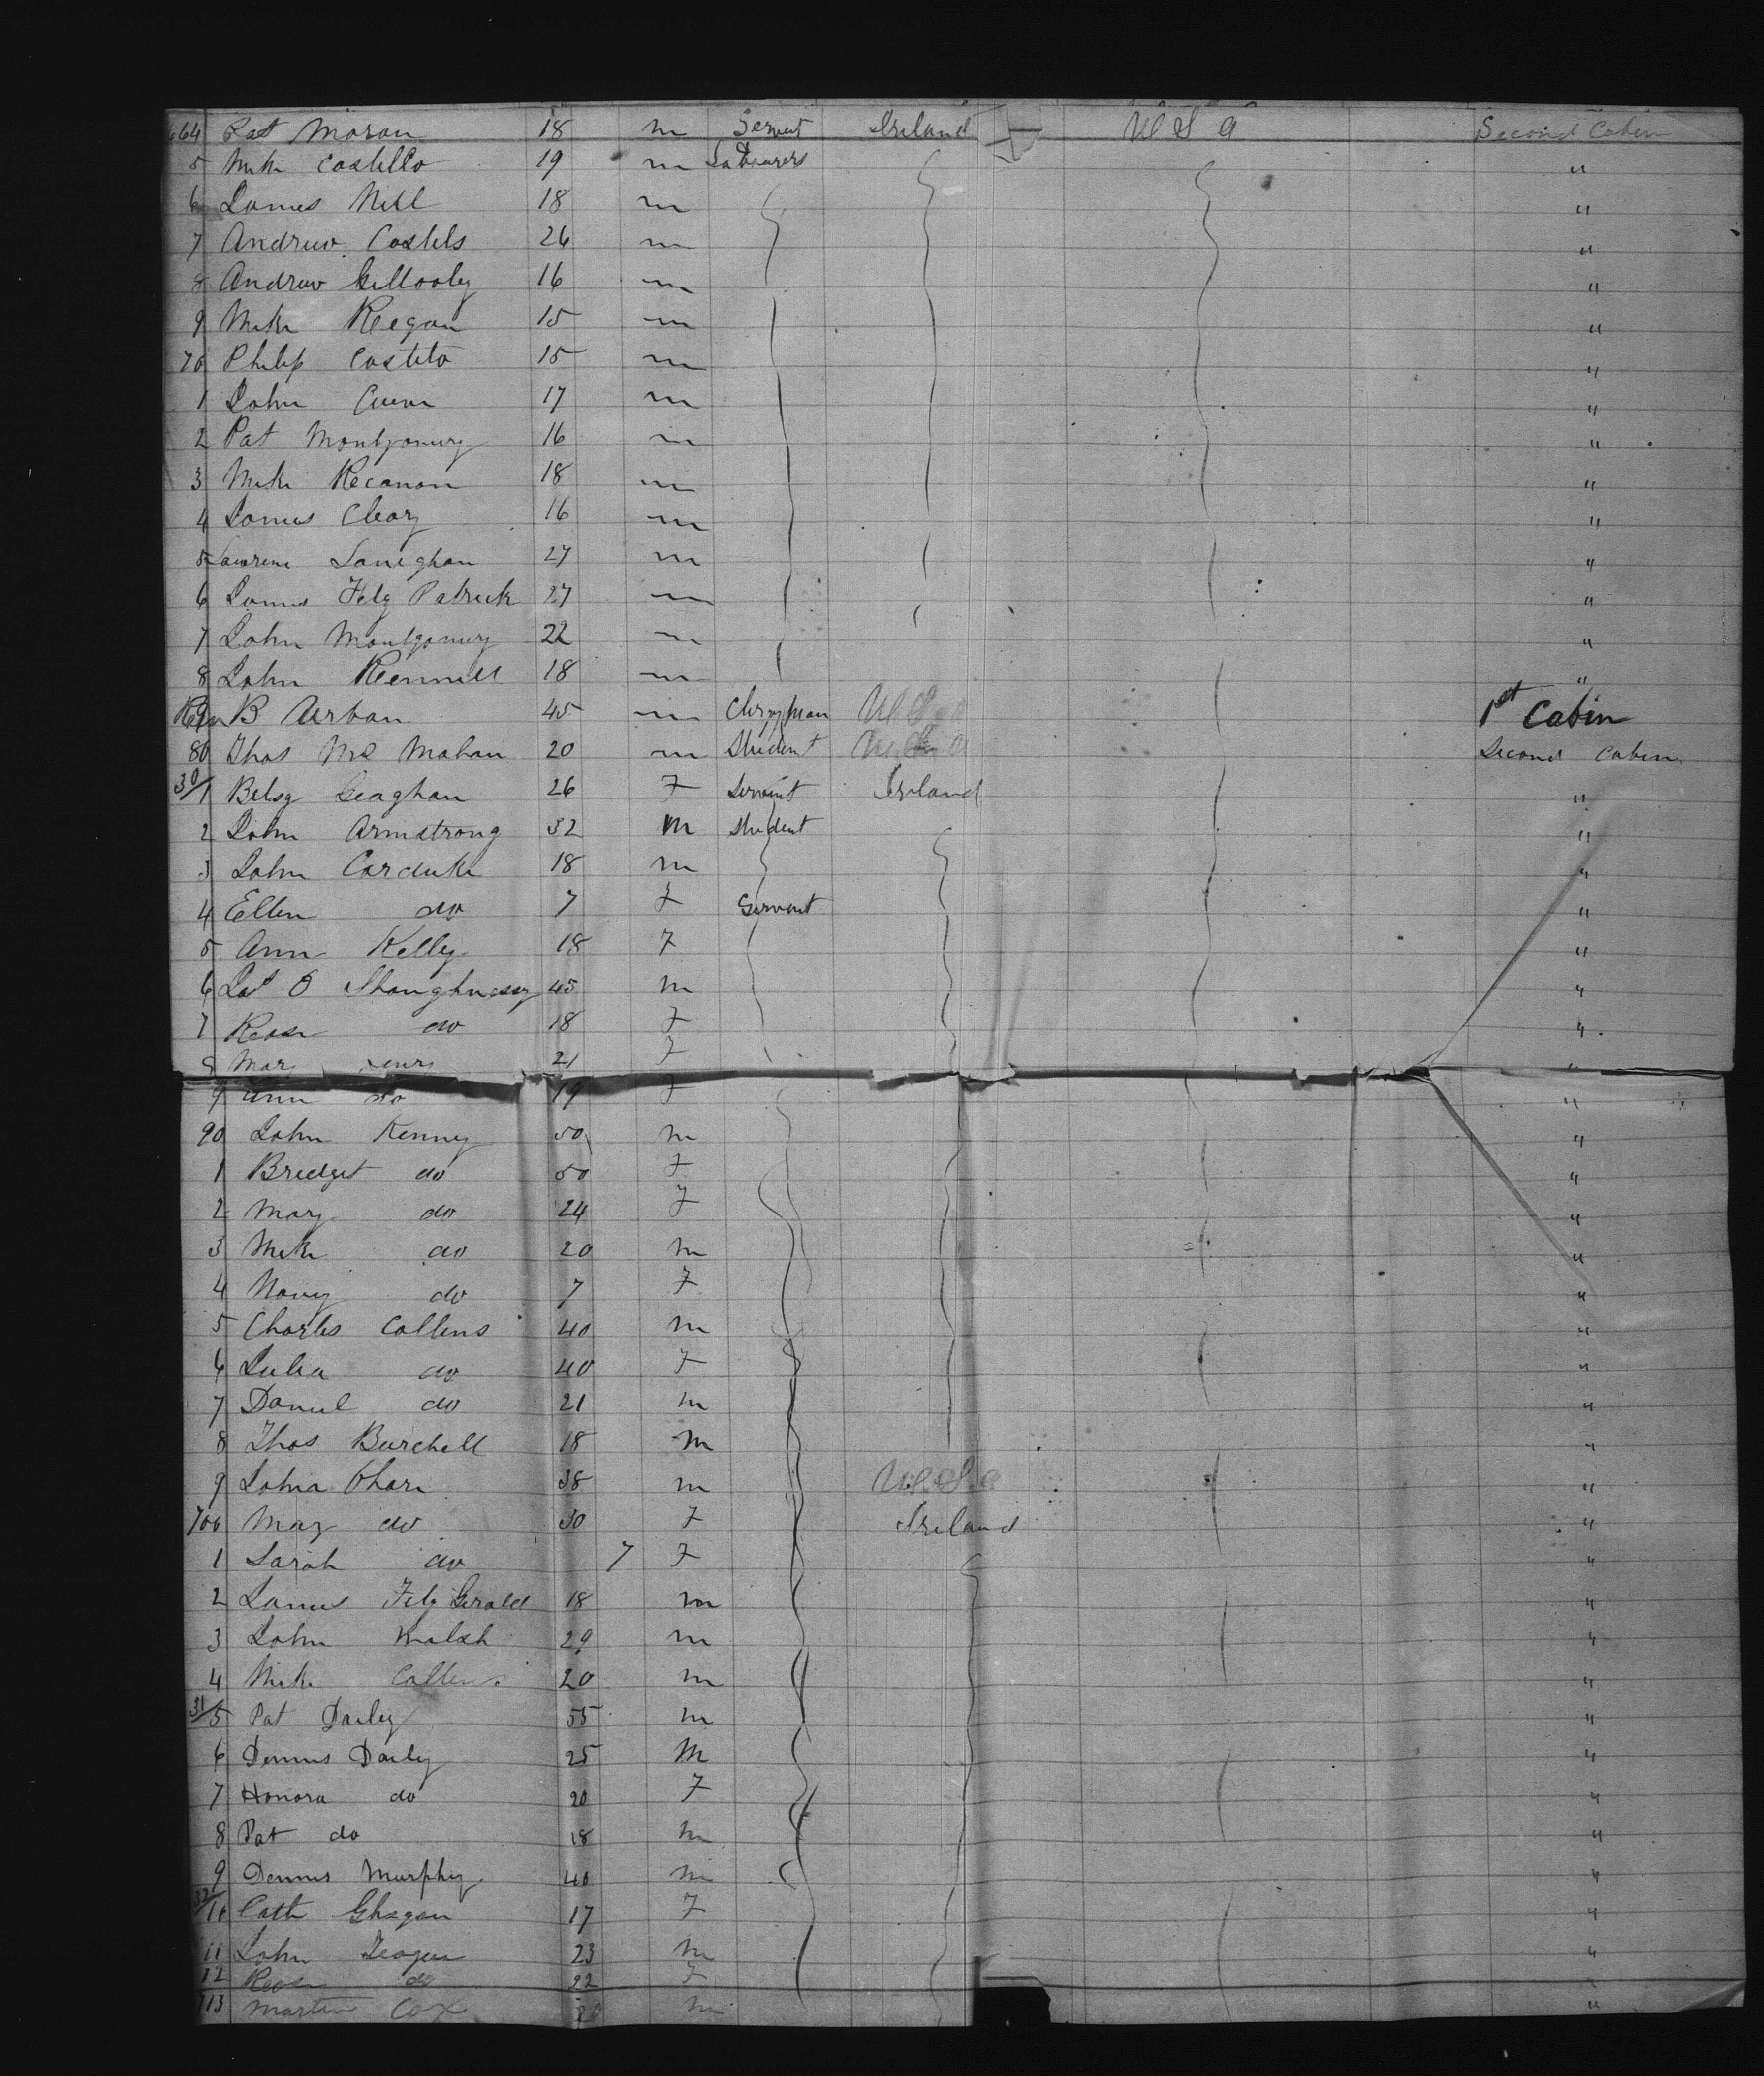 664 Pat Moran 18 m Servent Ireland U S A Second Cabin
5 Mike Costello 19 m Labourers "
6 James Neil 18 m "
7 Andrew Costels 26 m "
8 Andrew Gillooly 16 m "
9 Mike Keegan 15 m "
70 Philip Costelo 15 m "
1 John 17 m "
2 Pat Montgomery 16 m "
3 Mike 18 m "
4 James Cleary 16 m "
5 Lawrence 27 m "
6 James Fitz Patrick 27 m "
7 John Montgomery 22 m "
8 John 18 m "
9 B Urban 45 m Clergyman U S a 1st Cabin
80 Thos Mc Mahan 20 m Student Second Cabin
30/1 Betsy Geaghan 26 F Servent Ireland "
2 John Armstrong 32 M Student "
3 John Carduke 18 m "
4 Ellen do 7 F Servent "
5 Ann Kelly 18 F "
6 Pat O Shaughnessy 45 m "
7 Rose do 18 F "
8 21 F "
9 Ann do 19 F "
90 John Kenney 50 m "
1 Bridget do 50 F "
2 Mary do 24 F "
3 Mike do 20 m "
4 Nancy do 7 F "
5 Charles Collins 40 m "
6 Julia do 40 F "
7 Daniel do 21 m "
8 Thos Burchell 18 m "
9 38 m U S a "
700 Mary do 30 F Ireland "
1 Sarah do 7 F "
2 James Fitz Gerald 18 m "
3 John Walsh 29 m "
4 Mike Collens 20 m "
31/5 Pat Dailey 55 m "
6 Dennis Daily 25 M "
7 Honora do 20 F "
8 Pat do 18 m "
9 Dennis Murphy 40 m "
10 Cath 17 F "
11 John 23 m "
12 Rose do 22 F "
713 Martin Cox 20 m "